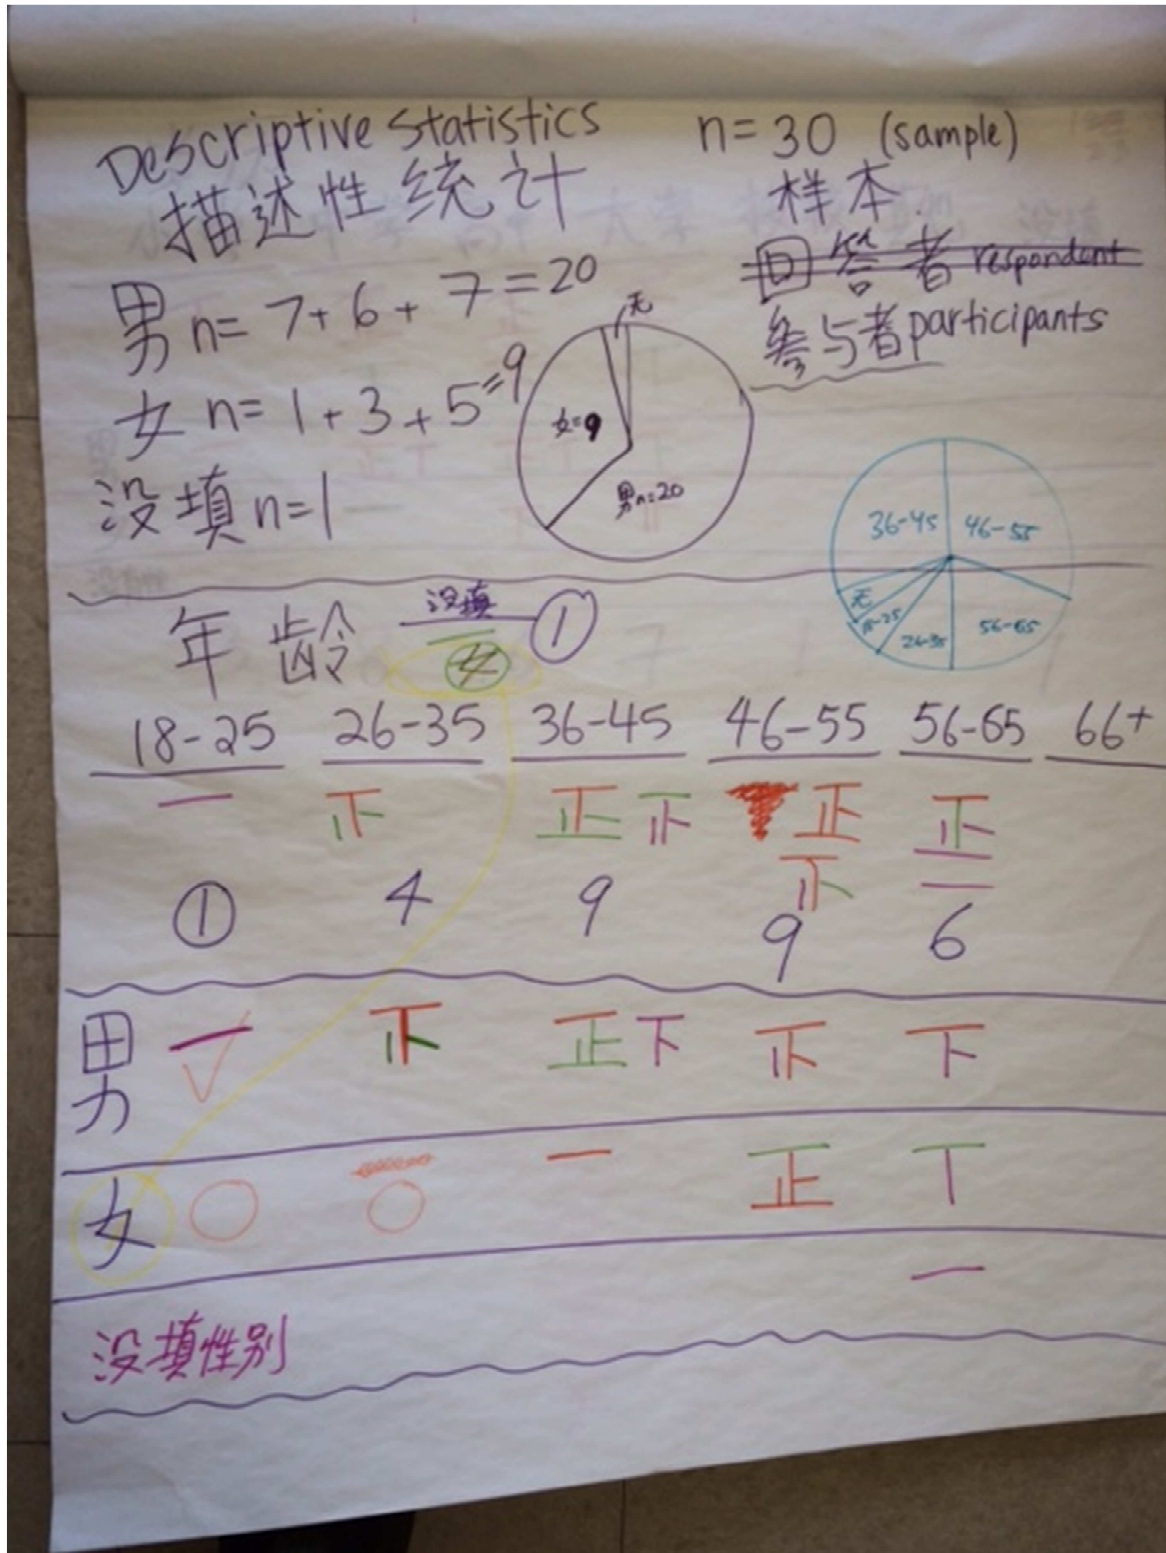 Descriptive Statistics
描述性统计
n=30 (sample)
样本
回答者 respondent
参与者 participants
男 n= 7+6+7=20
女 n= 1+3+5=9
没填 n=1
无
女=9
男n=20
36-45
46-55
无
18-25
26-35
56-65
年龄
没填 ①
女
18-25 26-35 36-45 46-55 56-65 66+
一 正 正 正 正 正
正 一
① 4 9 9 6
男 一 正 正 下 正 下
女 一 正 丅
一
没填性别